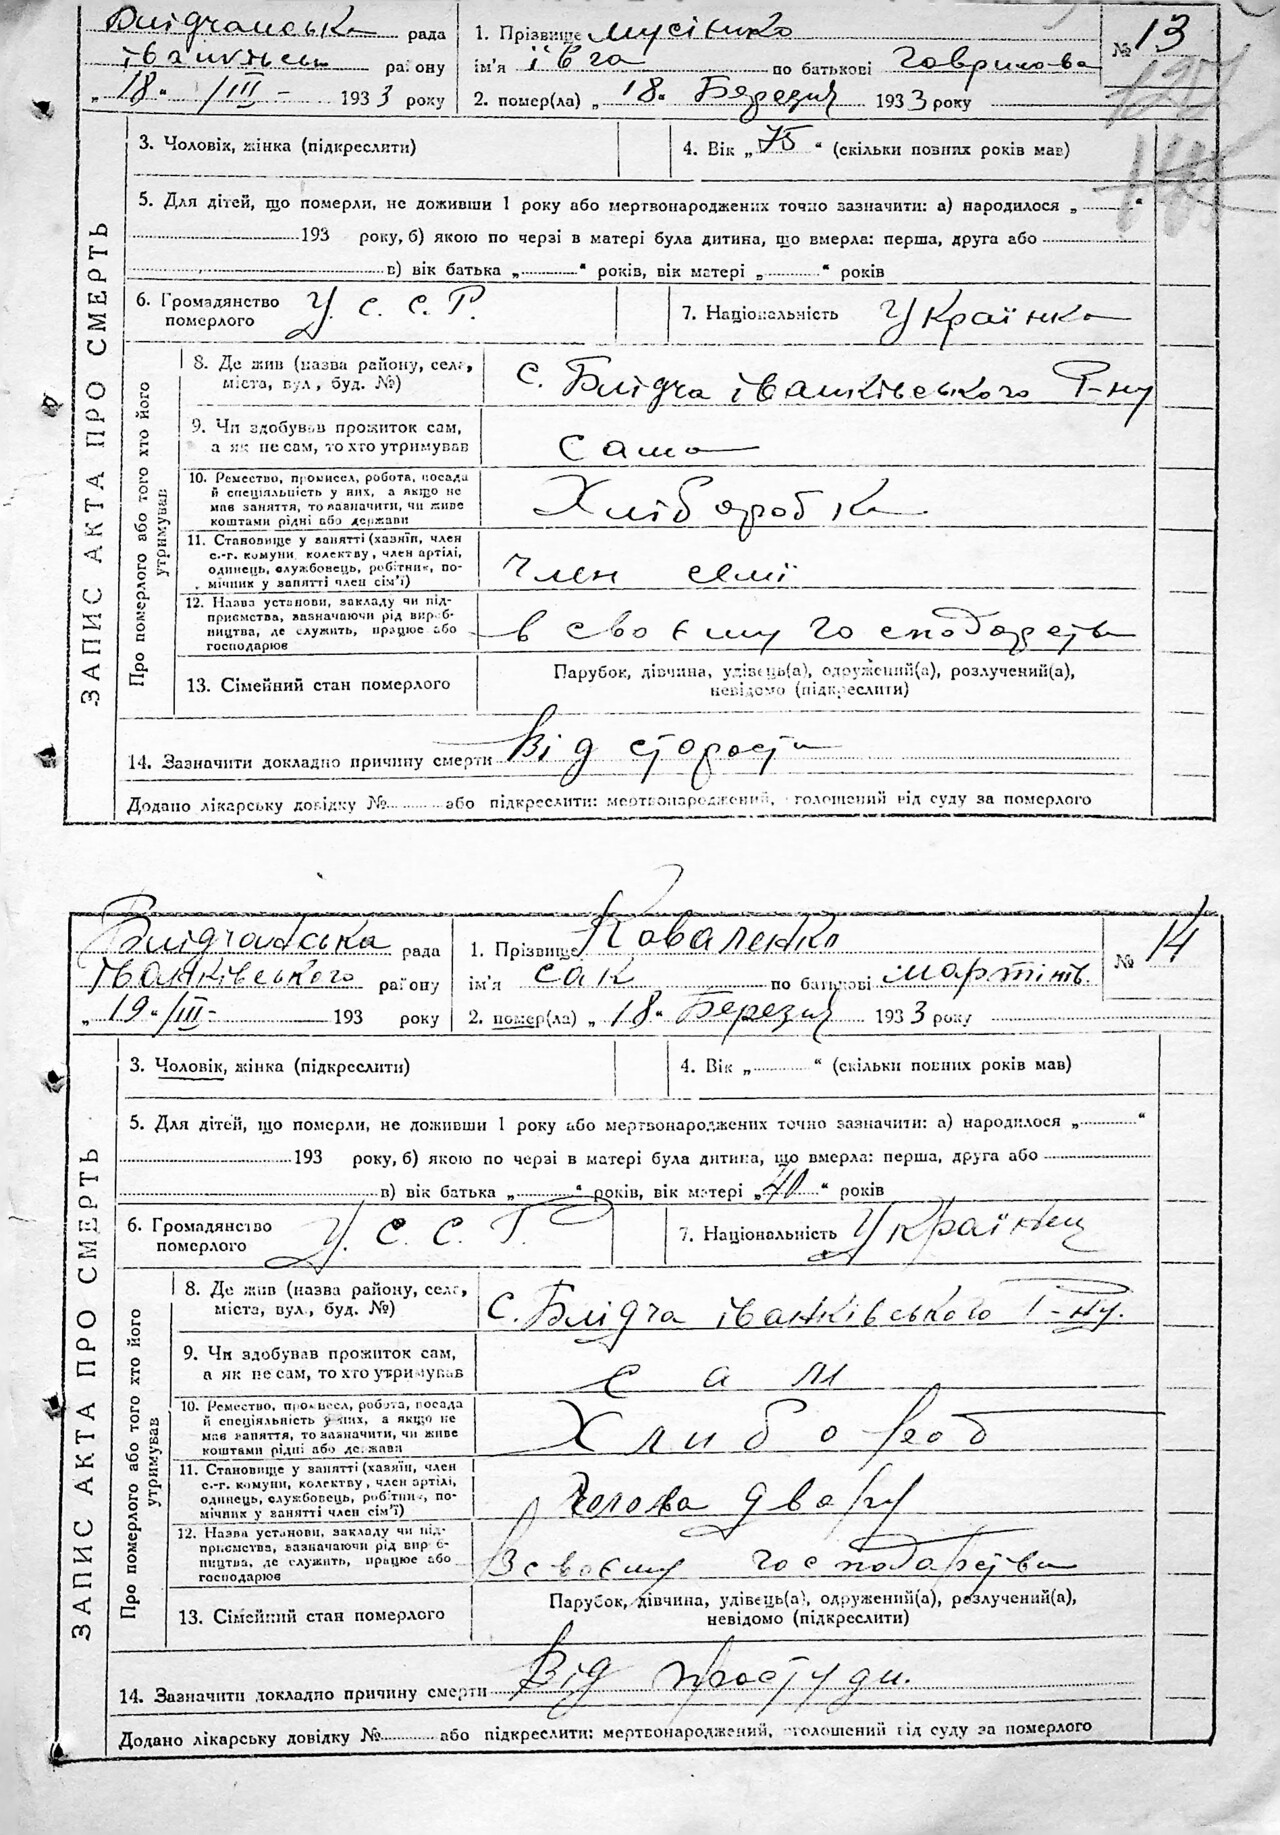 Блідчанська рада 1. Прізвище Мусієнко № 13
району ім'я івга по батькові Гаврилова
„18“ /ІІІ - 1933 року 2. помер(ла) „18“ Березня 1933 року
3. Чоловік, жінка (підкреслити) 4. Вік „75“ (скільки повних років мав)
5. Для дітей, що померли, не доживши 1 року або мертвонароджених точно зазначити: а) народилося „ “
193 року, б) якою по черзі в матері була дитина, що вмерла: перша, друга або
в) вік батька „ “ років, вік матері „ “ років
6. Громадянство померлого У. С. С. Р. 7. Національність Українка
ЗАПИС АКТА ПРО СМЕРТЬ
Про померлого або того хто його утримував
8. Де жив (назва району, села, міста, вул., буд. №) с. Блідча іванківського Р-ну
9. Чи здобував прожиток сам, а як не сам, то хто утримував сама
10. Ремество, промисел, робота, посада й спеціяльність у них, а якщо не мав заняття, то зазначити, чи живе коштами рідні або держави Хліборобка
11. Становище у занятті (хазяїн, член с.-г. комуни, колективу, член артілі, одинець, службовець, робітник, помічник у занятті член сім'ї) член семї
12. Назва установи, закладу чи підприємства, зазначаючи рід виробництва, де служить, працює або господарює в своєму господарстві
13. Сімейний стан померлого Парубок, дівчина, удівець(а), одружений(а), розлучений(а), невідомо (підкреслити)
14. Зазначити докладно причину смерти Від старости
Додано лікарську довідку № або підкреслити: мертвонароджений, оголошений від суду за померлого
Блідчанська рада 1. Прізвище Коваленко № 14
іванківського району ім'я сак по батькові мартинів.
„19“ /ІІІ - 193 року 2. помер(ла) „18“ Березня 1933 року
3. Чоловік, жінка (підкреслити) 4. Вік „ “ (скільки повних років мав)
5. Для дітей, що померли, не доживши 1 року або мертвонароджених точно зазначити: а) народилося „ “
193 року, б) якою по черзі в матері була дитина, що вмерла: перша, друга або
в) вік батька „ “ років, вік матері „70“ років
6. Громадянство померлого У. С. С. Р. 7. Національність Українец
ЗАПИС АКТА ПРО СМЕРТЬ
Про померлого або того хто його утримував
8. Де жив (назва району, села, міста, вул., буд. №) с. Блідча іванківського Р-ну.
9. Чи здобував прожиток сам, а як не сам, то хто утримував сам
10. Ремество, промисел, робота, посада й спеціяльність у них, а якщо не мав заняття, то зазначити, чи живе коштами рідні або держави Хлибороб
11. Становище у занятті (хазяїн, член с.-г. комуни, колективу, член артілі, одинець, службовець, робітник, помічник у занятті член сім'ї) Голова двору
12. Назва установи, закладу чи підприємства, зазначаючи рід виробництва, де служить, працює або господарює В своєму господарстві
13. Сімейний стан померлого Парубок, дівчина, удівець(а), одружений(а), розлучений(а), невідомо (підкреслити)
14. Зазначити докладно причину смерти Від простуди.
Додано лікарську довідку № або підкреслити: мертвонароджений, оголошений від суду за померлого